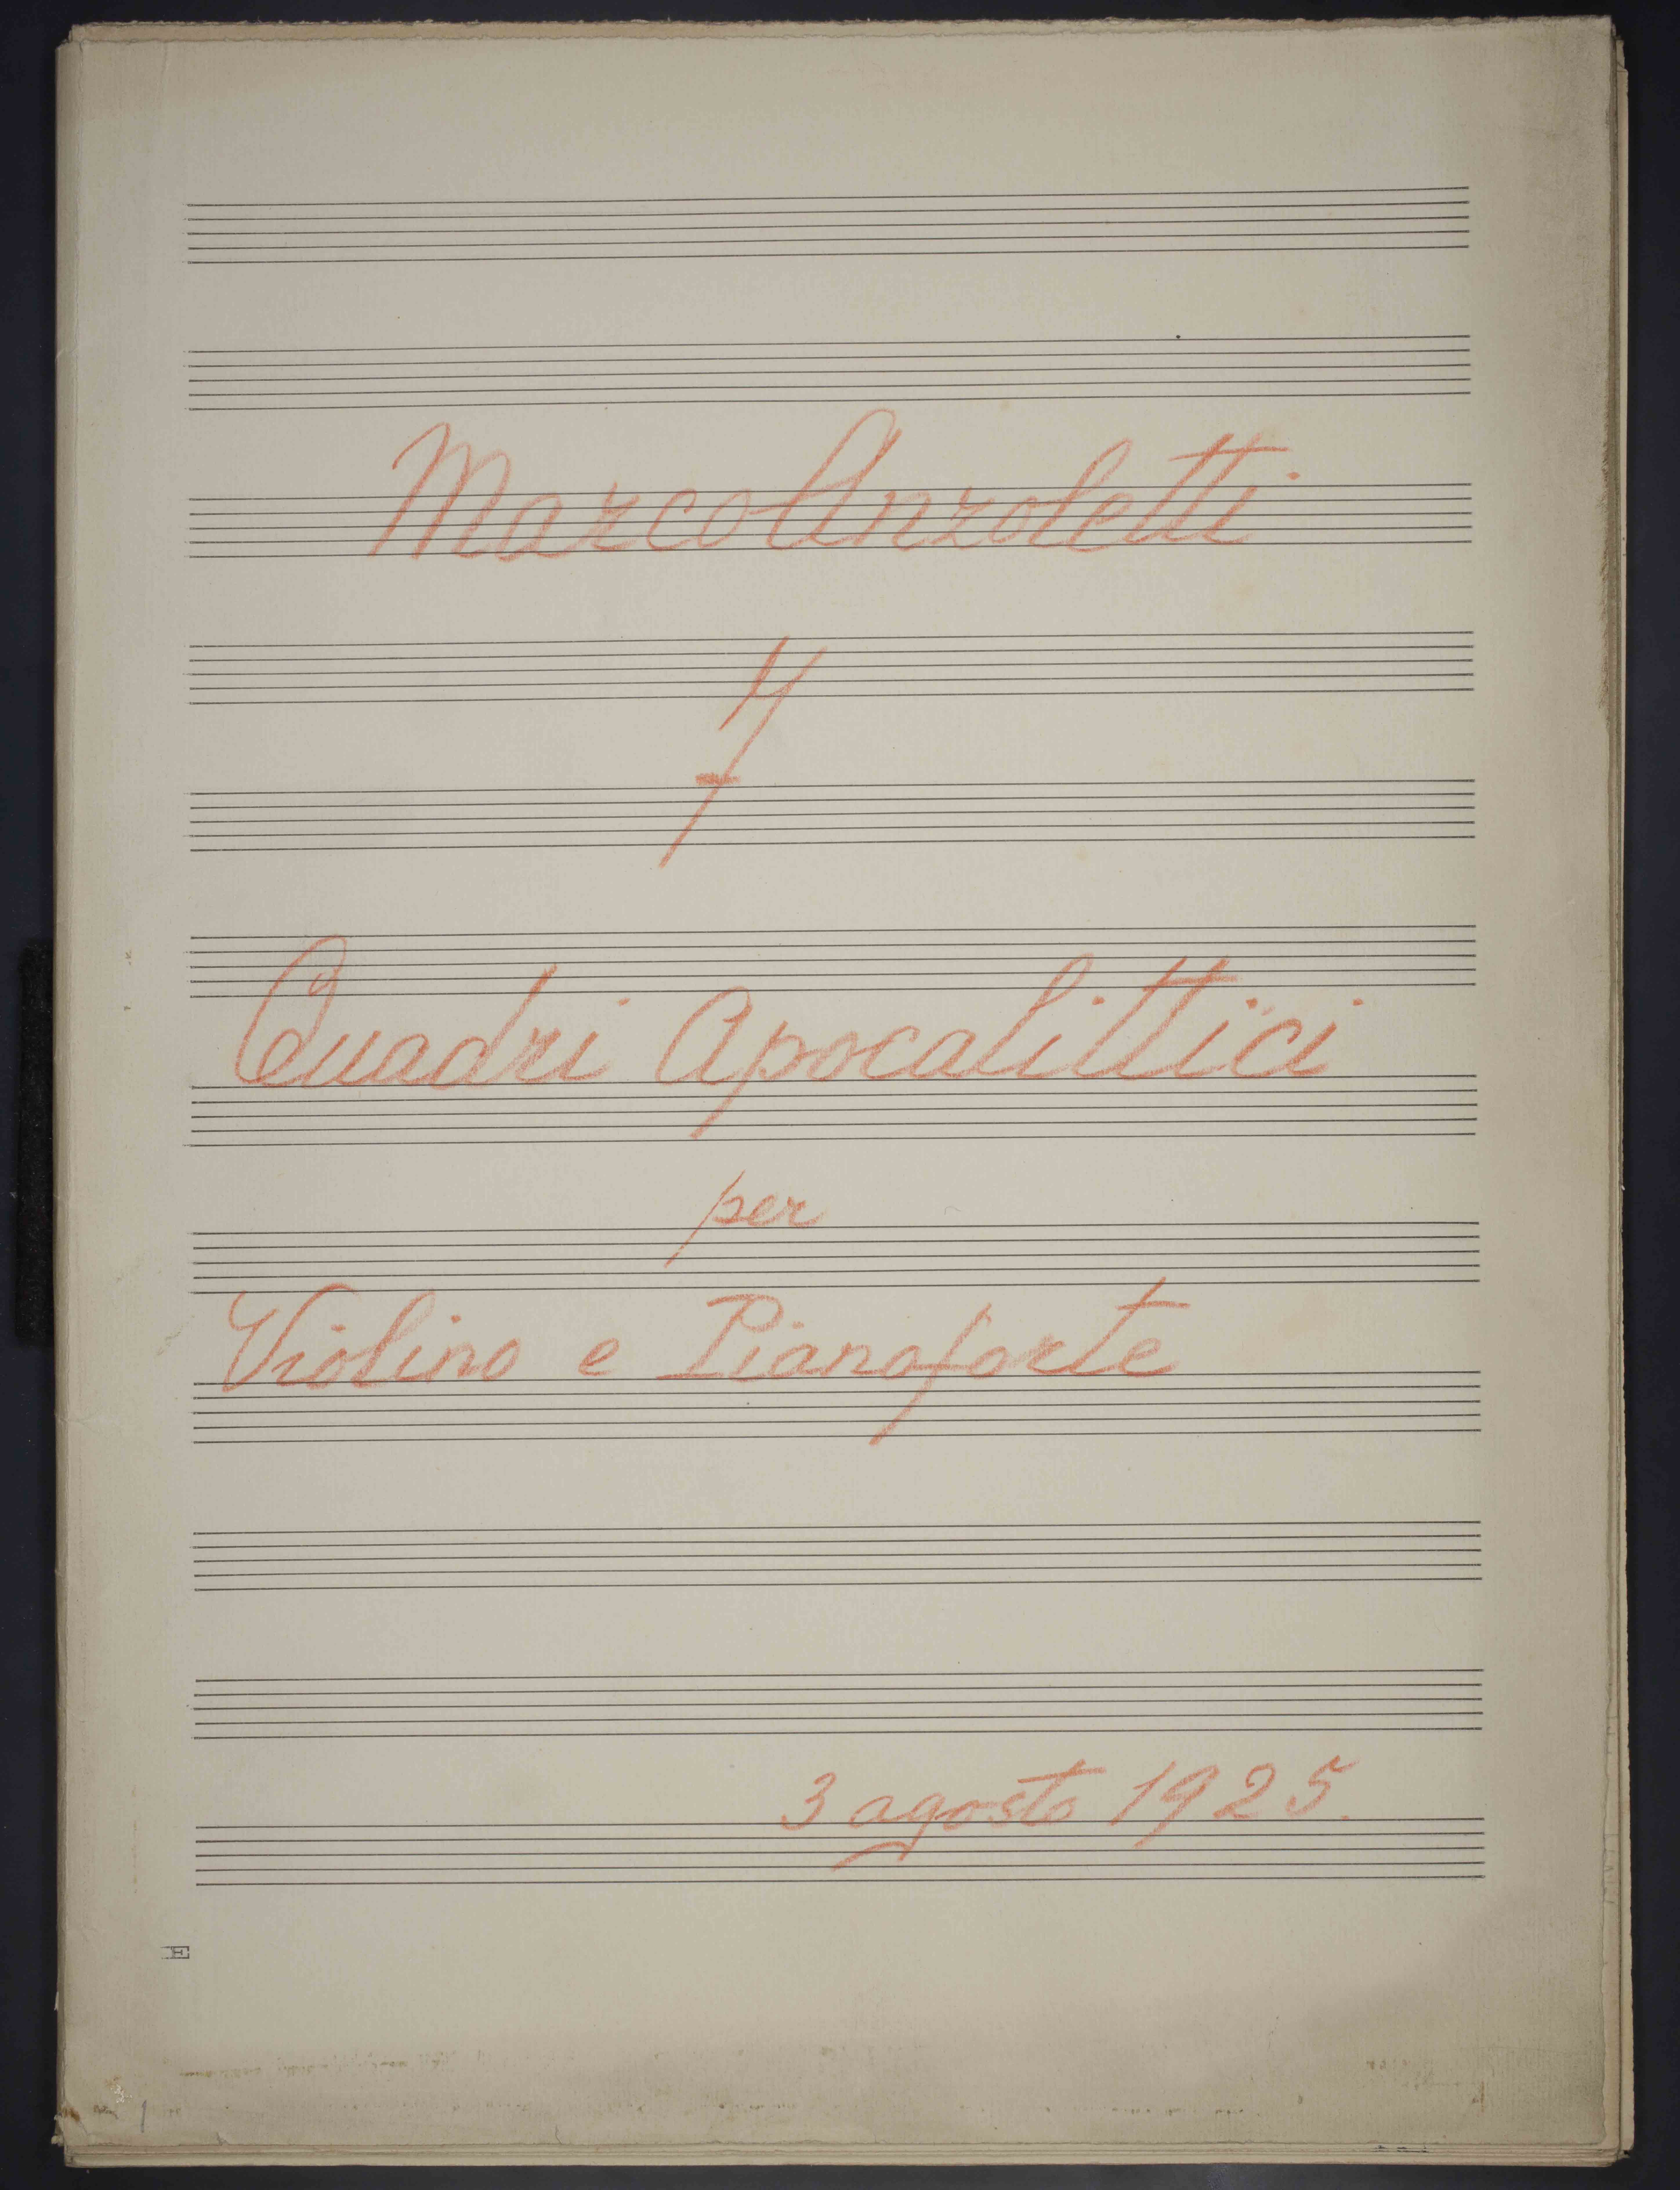 Marco Anzoletti
7
Quadri Apocalittici
per
Violino e Pianoforte
3 agosto 1925.
E
1